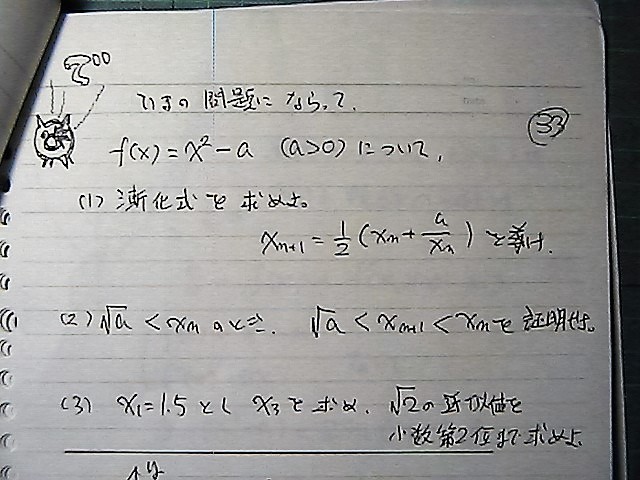 いまの問題にならって、
33
f(x)=x²-a (a>0)について,
(1) 漸化式を求めよ。
xn+1 = 1/2 (xn + a/xn) を導け.
(2) √a < xn のとき. √a < xn+1 < xn を証明せよ。
(3) x1=1.5とし x3を求め. √2の近似値を
小数第2位まで求めよ
y